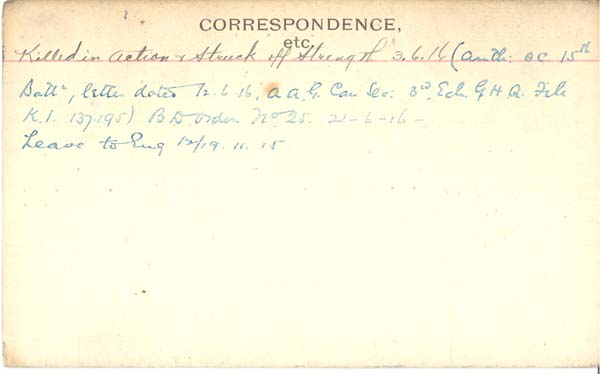 CORRESPONDENCE,
etc.
Killed in action & Struck off Strength 3.6.16 (auth: OC 15th
Battn, letter dated 12.6.16, A.A.G. Can Sec: 3rd Ech. G.H.Q. File
K.I. 137-195) B D Orders No 25. 21-6-16 -
Leave to Eng 12/19.11.15